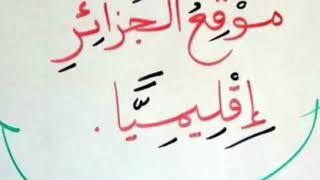 مَوْقِعُ الجَزائِرِ
إِقْلِيمِيًّا.